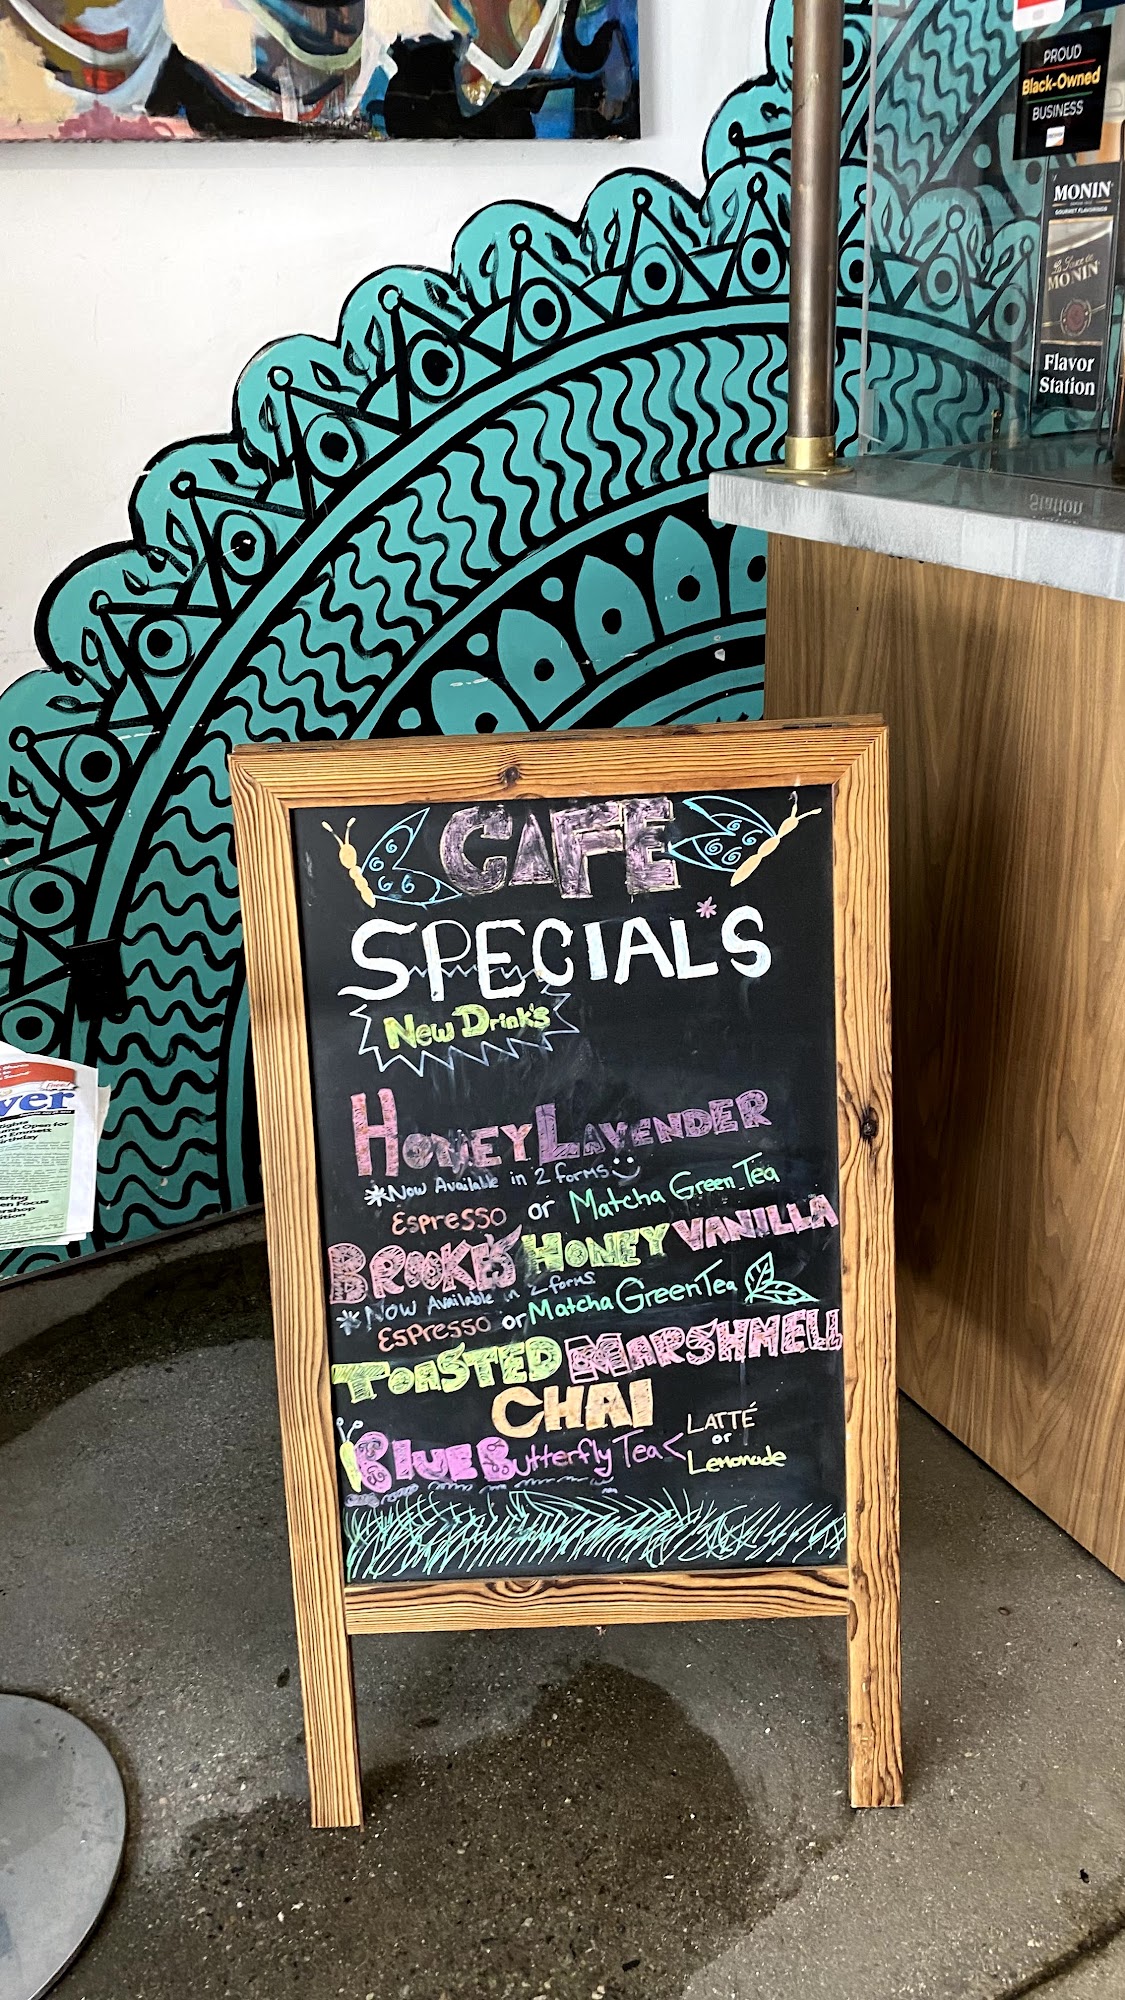 PROUD
Black-Owned
BUSINESS
MONIN
GOURMET FLAVORINGS
MONIN
Flavor
Station
CAFE
SPECIAL'S
New Drink's
HONEY LAVENDER
*Now Available in 2 forms
Espresso or Matcha Green Tea
BROOKE'S HONEY VANILLA
*Now Available in 2 forms
Espresso or Matcha Green Tea
TOASTED MARSHMELL
CHAI
BLUE Butterfly Tea < LATTÉ
or
Lemonade
yer
Open for
Emmett
Focus